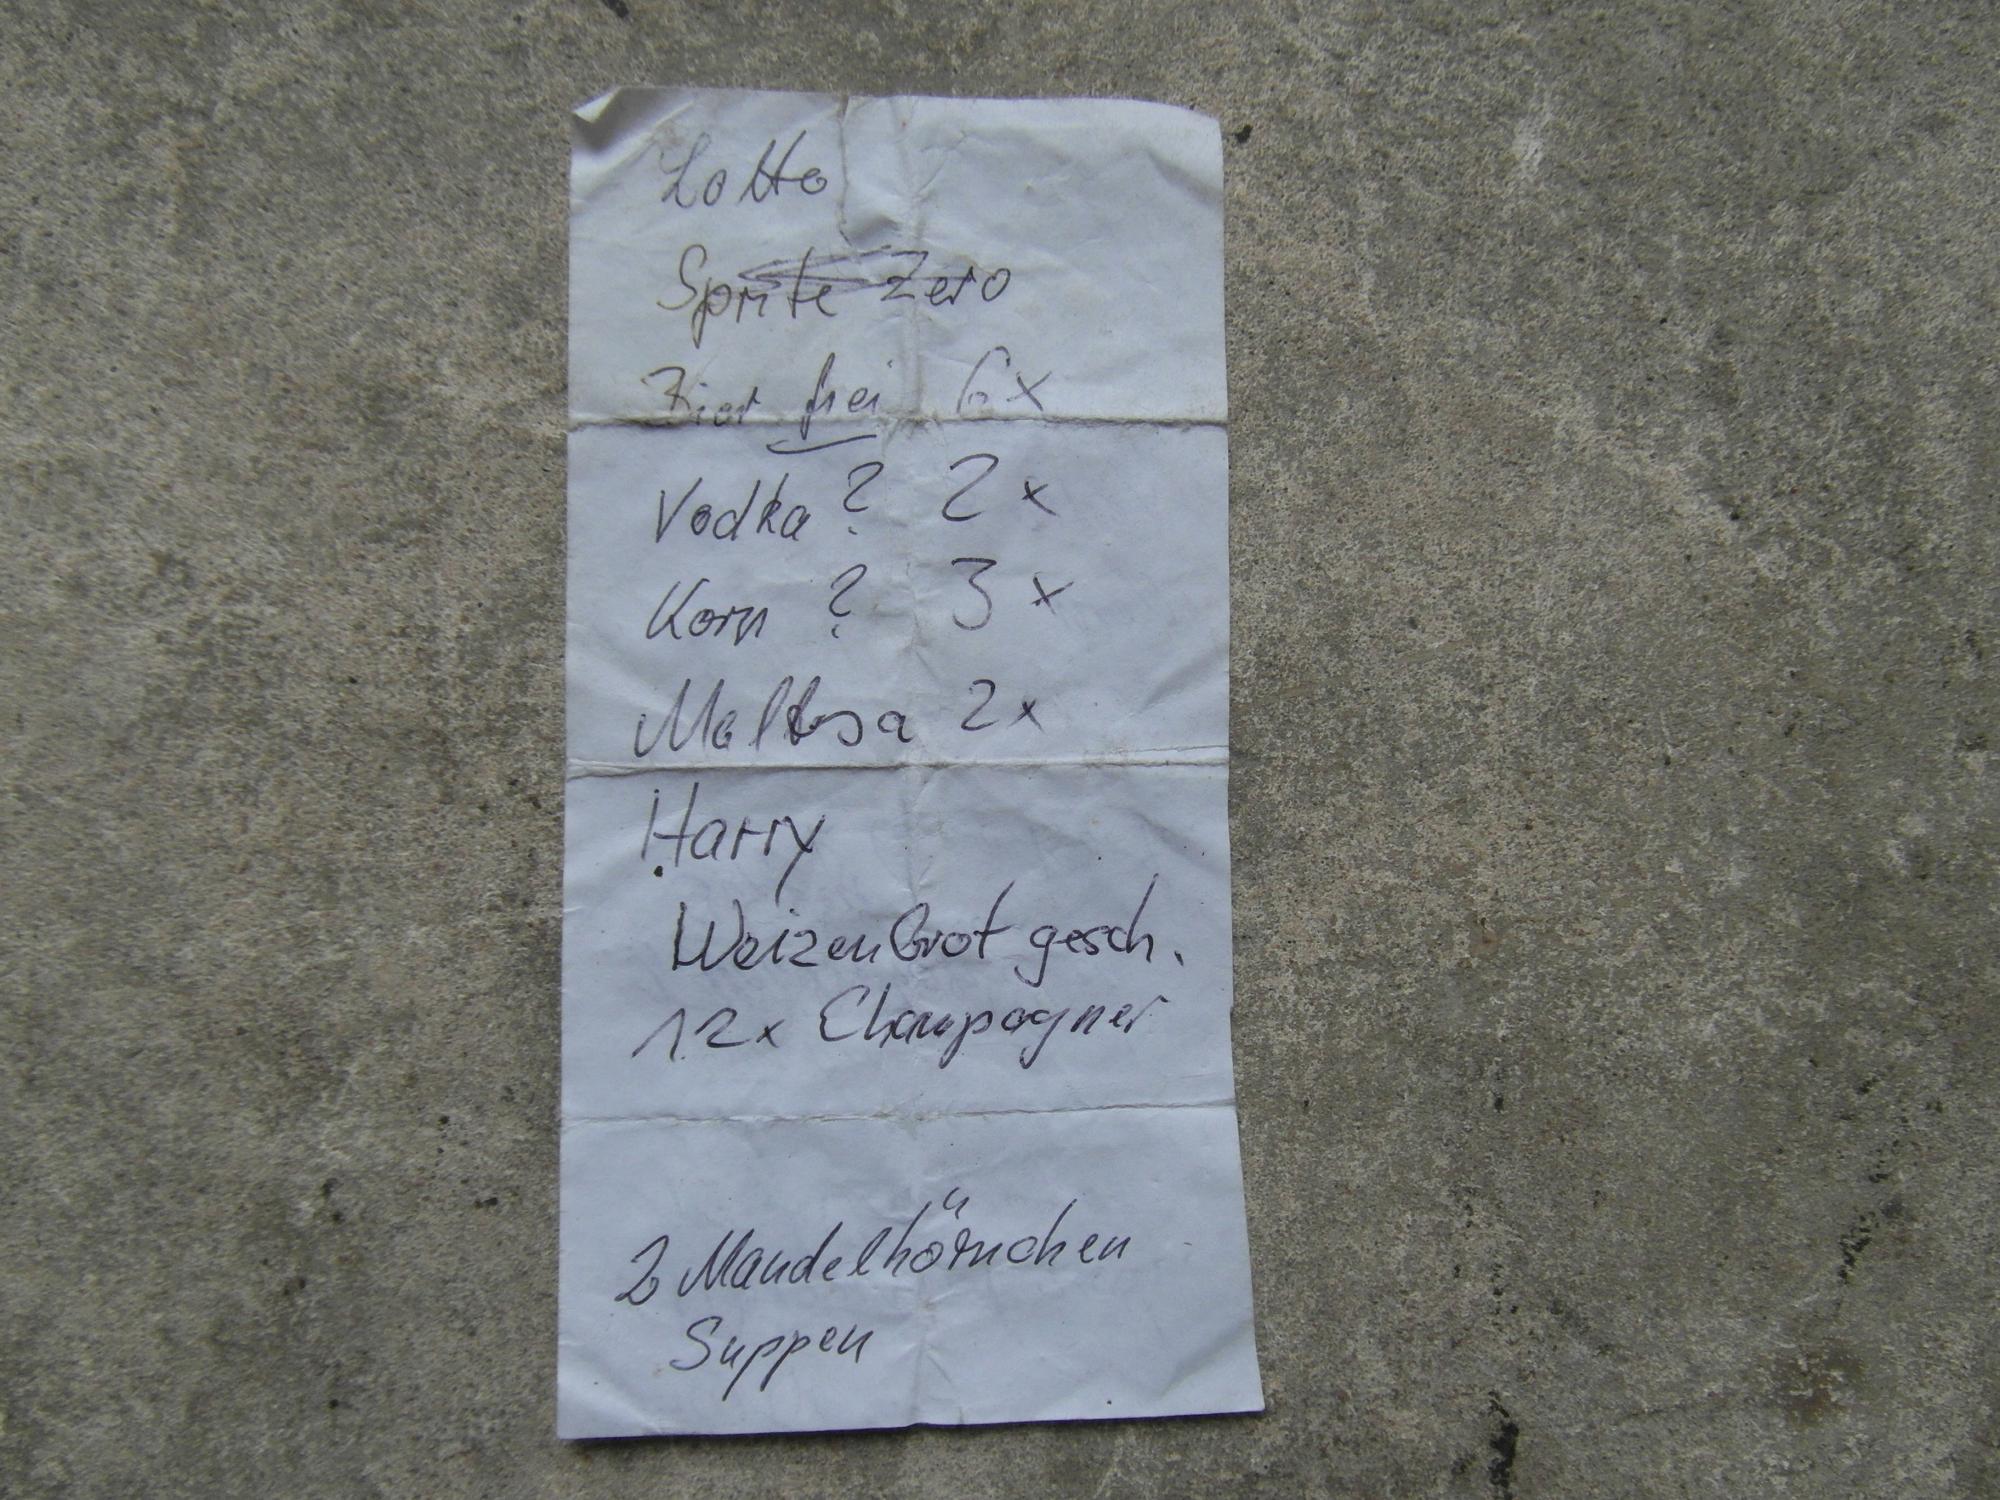 Lotto
Sprite Zero
Bier frei 6x
Vodka ? 2x
Korn ? 3x
Maltesa 2x
Harry
Weizenbrot gesch.
12x Champagner
2 Mandelhörnchen
Suppen